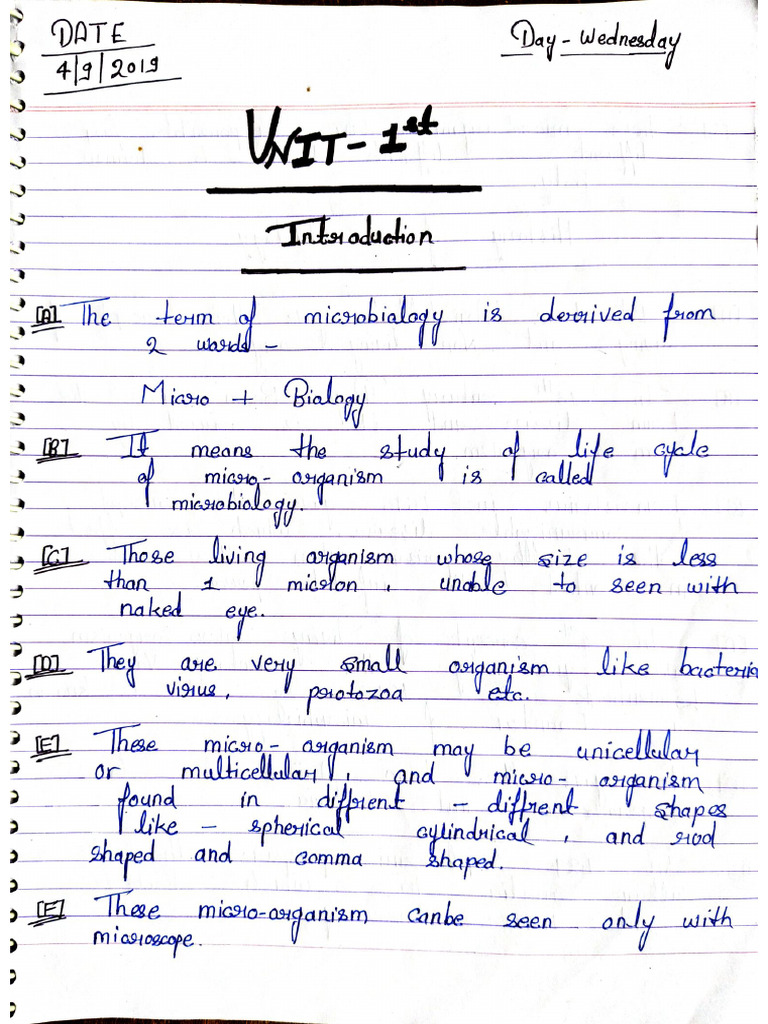 DATE
4/9/2019
Day - Wednesday
UNIT - 1st
Introduction
[A] The term of microbialogy is derrived from
2 words -
Micro + Biology
[B] It means the study of life cycle
of micro- organism is called
microbiology.
[C] Those living organism whose size is less
than 1 micron, unable to seen with
naked eye.
[D] They are very small organism like bacteria
virus, protozoa etc.
[E] These micro- organism may be unicellular
or multicellular, and micro- organism
found in diffrent - diffrent shapes
like - spherical cylindrical, and rod
shaped and comma shaped.
[E] These micro-organism canbe seen only with
microscope.